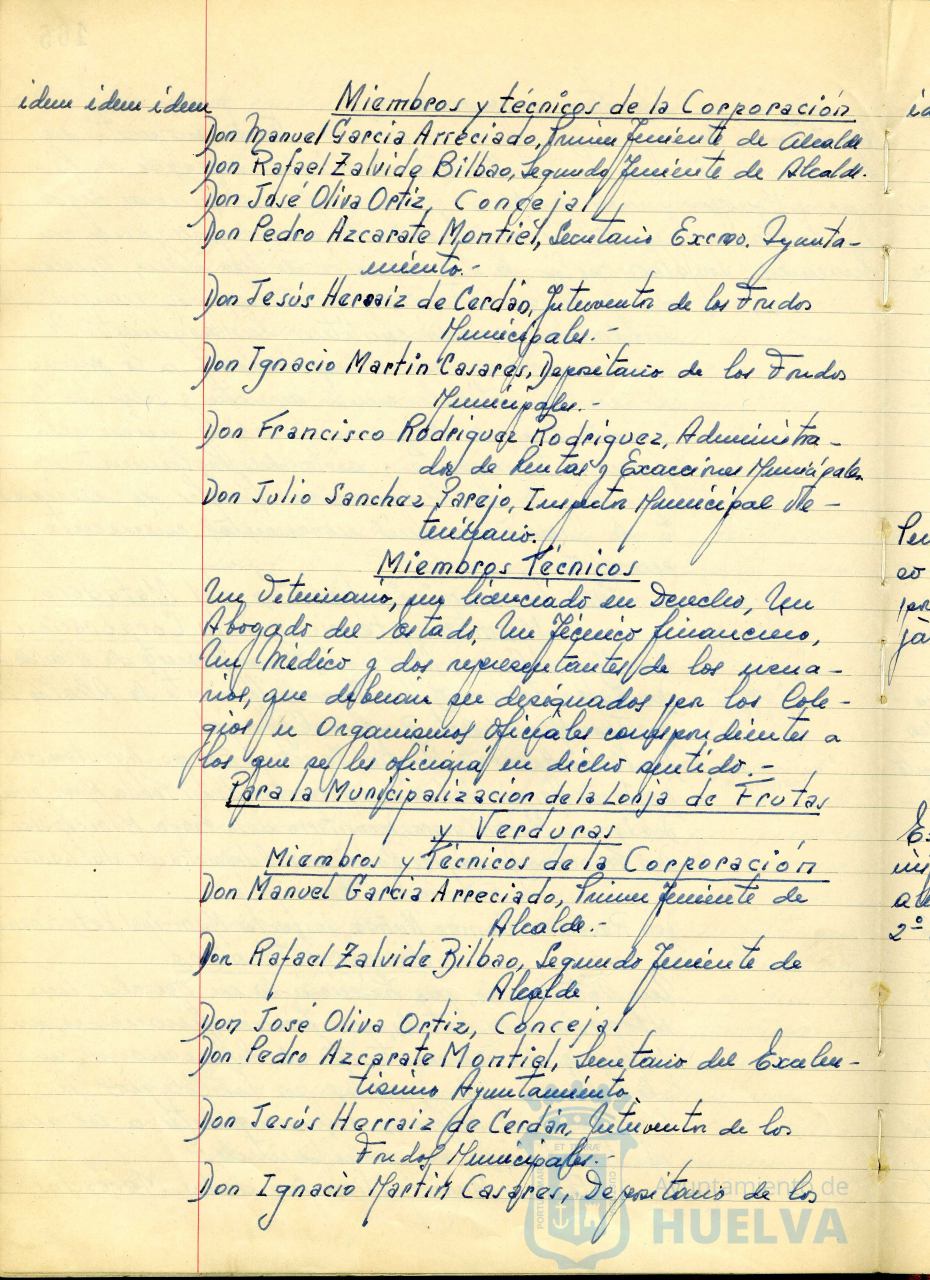 idem idem idem
Miembros y técnicos de la Corporación
Don Manuel Garcia Arreciado, Primer Teniente de Alcalde
Don Rafael Zalvide Bilbao, Segundo Teniente de Alcalde.
Don José Oliva Ortiz, Concejal
Don Pedro Azcarate Montiel, Secretario Excmo. Ayunta-
miento.-
Don Jesús Herraiz de Cerdán, Interventor de los Fondos
Municipales.-
Don Ignacio Martin Casares, Depositario de los Fondos
Municipales.-
Don Francisco Rodriguez Rodriguez, Administra-
dor de Rentas y Exacciones Municipales
Don Julio Sanchez Parejo, Inspector Municipal Ve-
terinario.
Miembros Técnicos
Un Veterinario, un licenciado en Derecho, Un
Abogado del Estado, Un Técnico financiero,
Un Médico y dos representantes de los usua-
rios, que deberán ser designados por los Cole-
gios u Organismos Oficiales correspondientes a
los que se les oficiará en dicho sentido.-
Para la Municipalización de la Lonja de Frutas
y Verduras
Miembros y Técnicos de la Corporación
Don Manuel Garcia Arreciado, Primer Teniente de
Alcalde.-
Don Rafael Zalvide Bilbao, Segundo Teniente de
Alcalde
Don José Oliva Ortiz, Concejal
Don Pedro Azcarate Montiel, Secretario del Excelen-
tisimo Ayuntamiento
Don Jesús Herraiz de Cerdán, Interventor de los
Fondos Municipales.-
Don Ignacio Martin Casares, Depositario de los
Ayuntamiento de
HUELVA